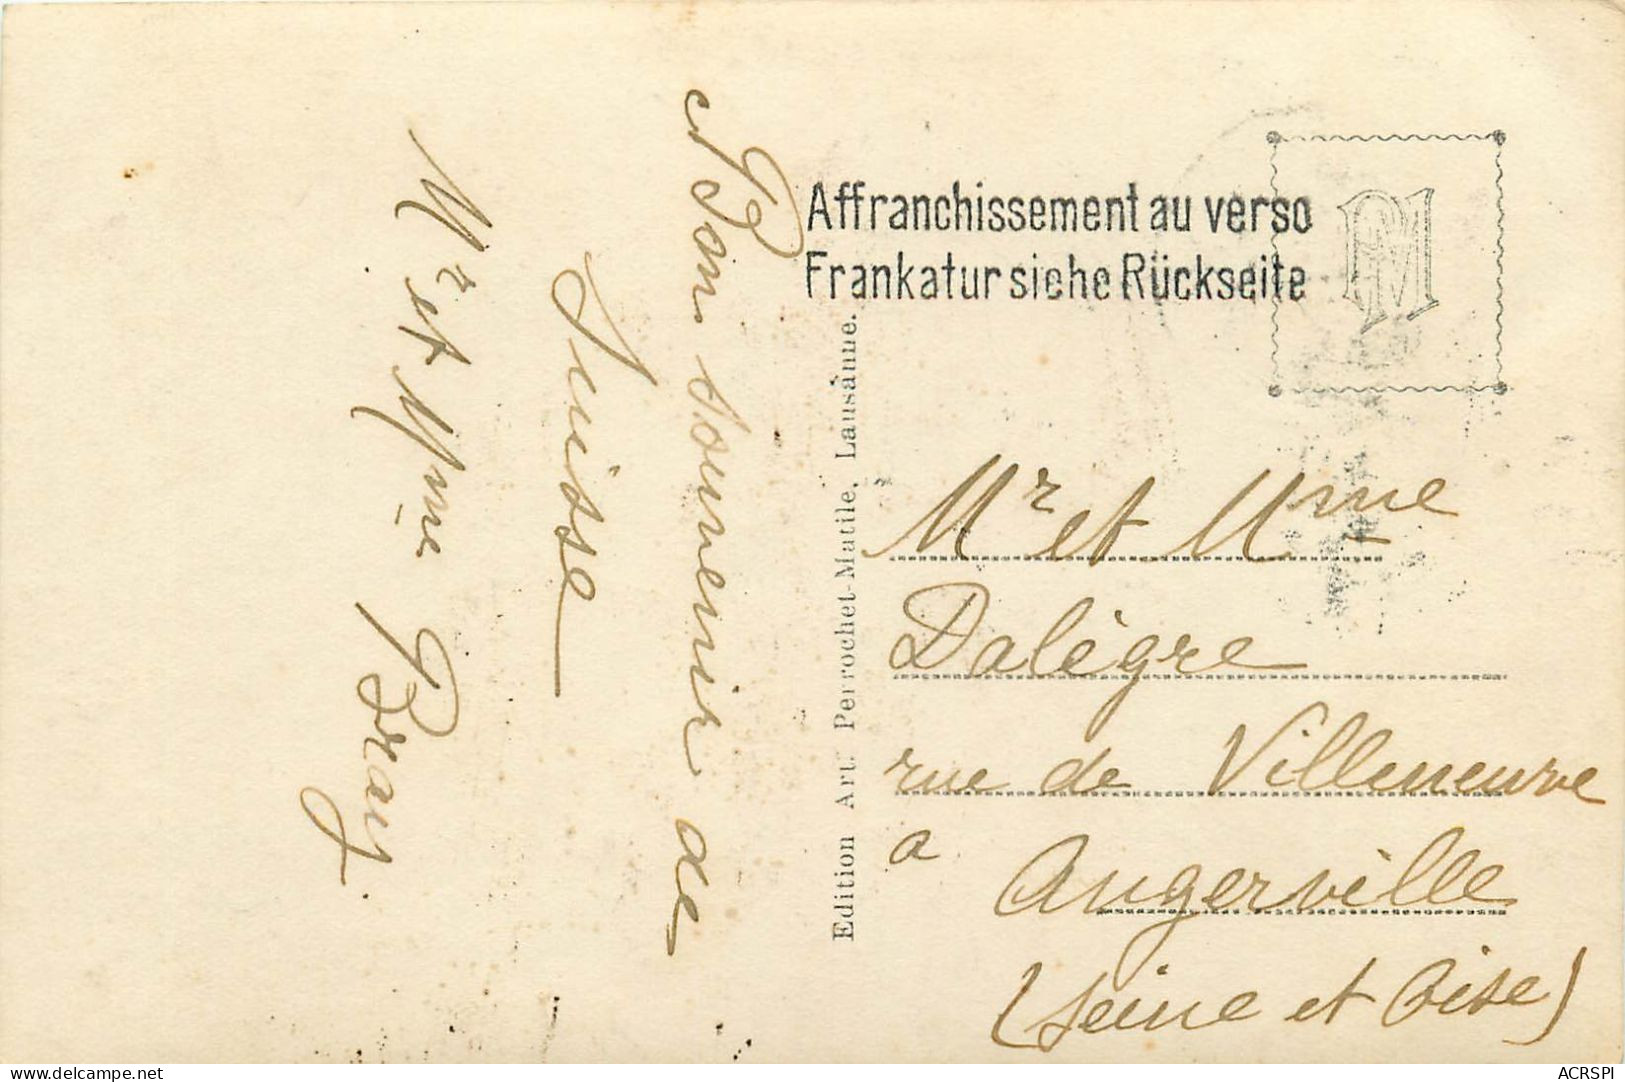 Bon souvenir de
Suisse
Mr et Mme Bray.
Affranchissement au verso
Frankatur siehe Rückseite
PM
Edition Art. Perrochet-Matile, Lausanne.
Mr et Mme
Dalègre
rue de Villeneuve
a Angerville
(Seine et Oise)
delcampe.net
ACRSPI